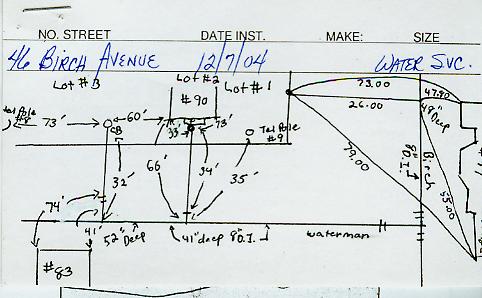 NO. STREET DATE INST. MAKE: SIZE
46 BIRCH AVENUE 12/7/04 WATER SVC.
Lot #3 Lot #2 Lot #1
#90
73.00
47.90
26.00
48" Deep
Tel Pole
73' 60' 73'
CB 33'
Tel Pole
#9
79.00
8" D.I.
Birch
55.00
32' 66' 34' 35'
74'
41' 52" Deep 41" deep 8" D.I.
waterman
#83